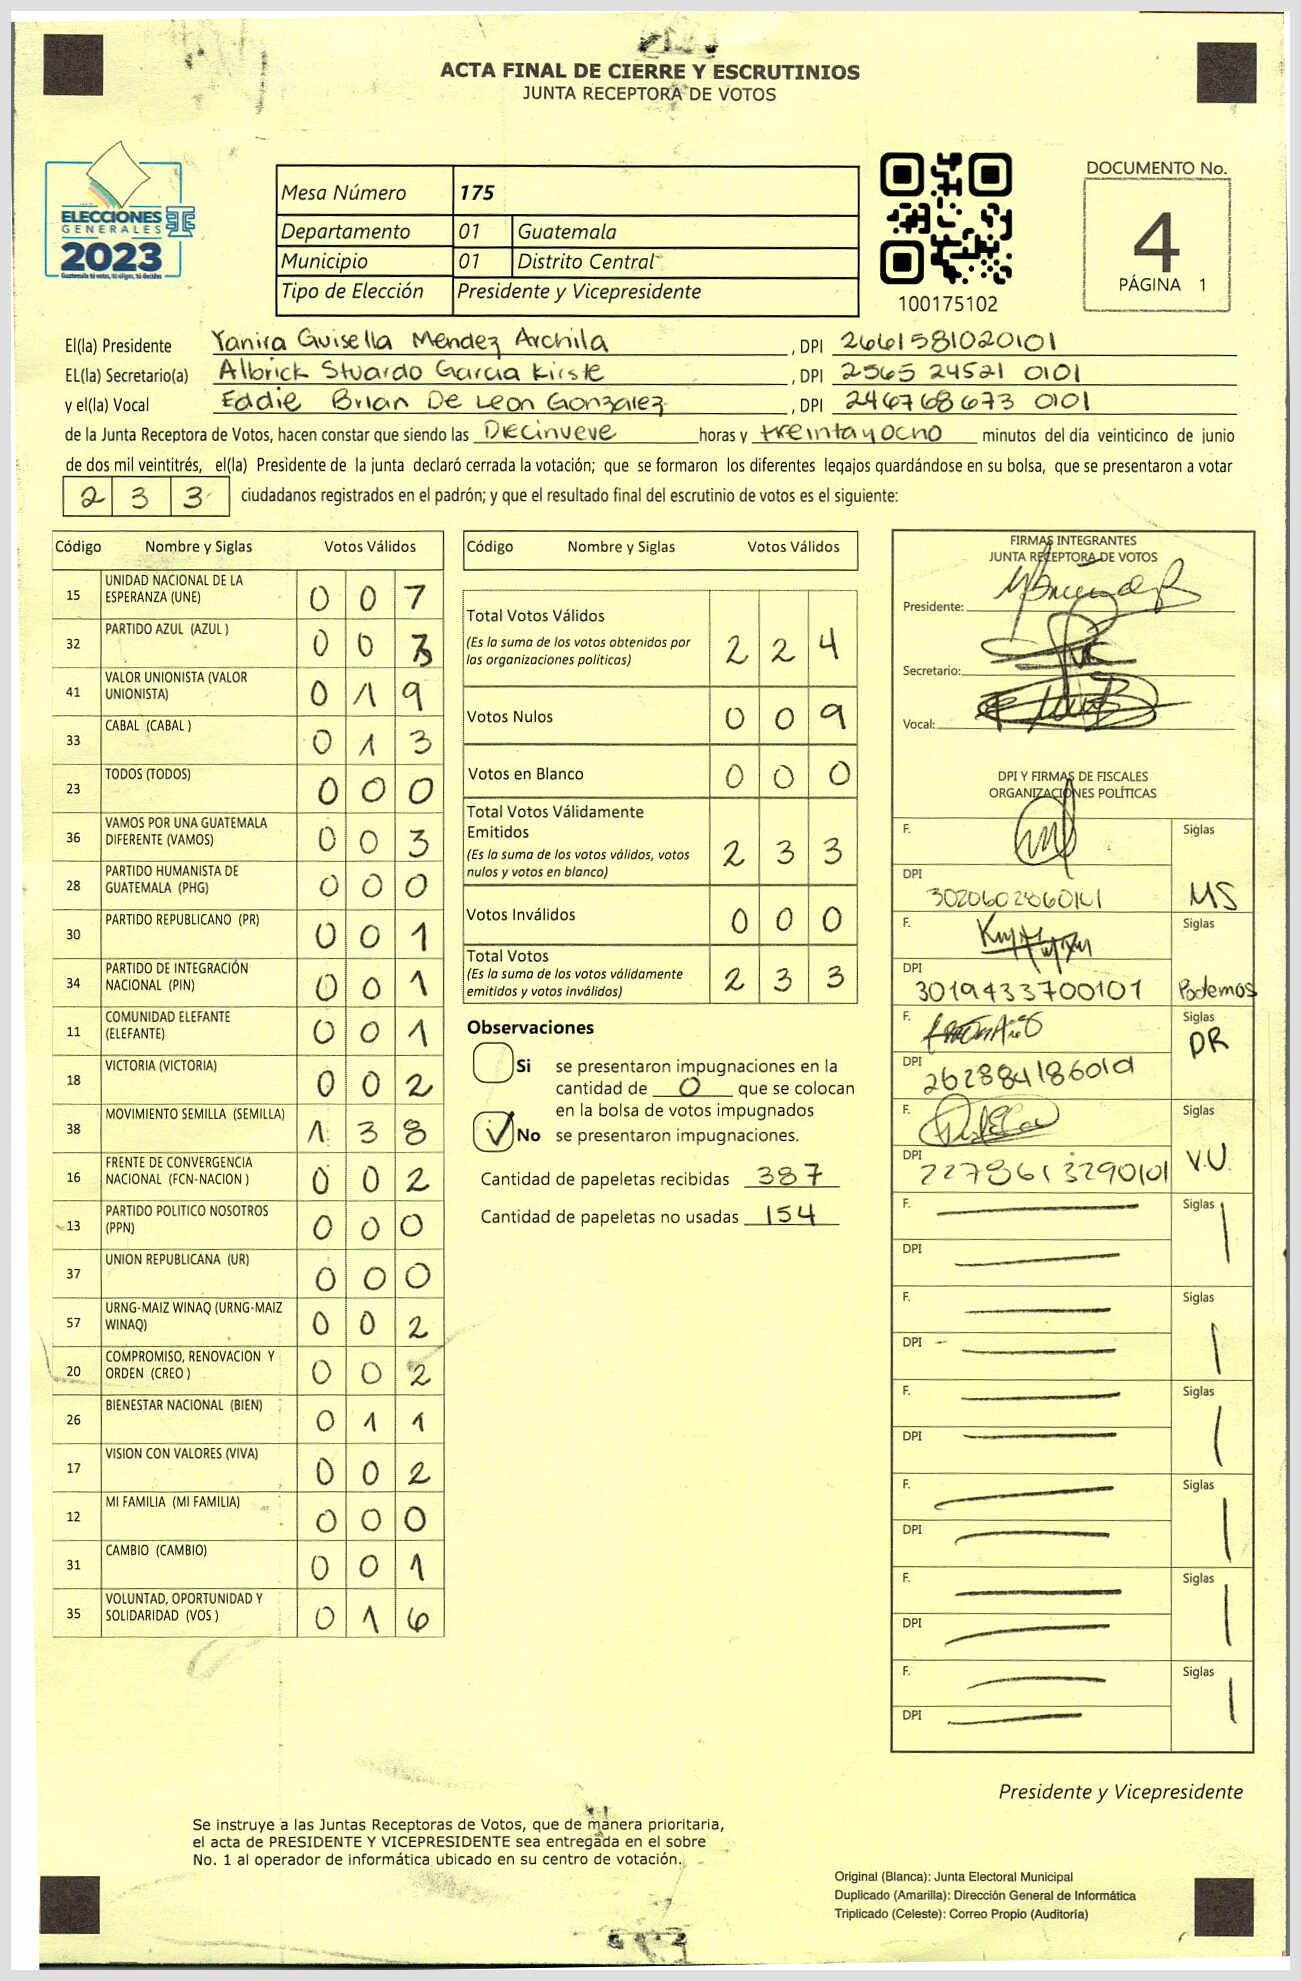 ACTA FINAL DE CIERRE Y ESCRUTINIOS
JUNTA RECEPTORA DE VOTOS
ELECCIONES
GENERALES
2023
Guatemala tú votas, tú eliges, tú decides
Mesa Número 175
Departamento 01 Guatemala
Municipio 01 Distrito Central
Tipo de Elección Presidente y Vicepresidente
100175102
DOCUMENTO No.
4
PÁGINA 1
El(la) Presidente Yanira Guisella Mendez Archila, DPI 2661581020101
EL(la) Secretario(a) Albrick Stuardo Garcia Kirste, DPI 2565 24521 0101
y el(la) Vocal Eddie Brian De Leon Gonzalez, DPI 246768673 0101
de la Junta Receptora de Votos, hacen constar que siendo las Diecinueve horas y treinta y ocho minutos del día veinticinco de junio
de dos mil veintitrés, el(la) Presidente de la junta declaró cerrada la votación; que se formaron los diferentes legajos guardándose en su bolsa, que se presentaron a votar
2 3 3 ciudadanos registrados en el padrón; y que el resultado final del escrutinio de votos es el siguiente:
Código Nombre y Siglas Votos Válidos
15 UNIDAD NACIONAL DE LA ESPERANZA (UNE) 0 0 7
32 PARTIDO AZUL (AZUL ) 0 0 3
41 VALOR UNIONISTA (VALOR UNIONISTA) 0 1 9
33 CABAL (CABAL ) 0 1 3
23 TODOS (TODOS) 0 0 0
36 VAMOS POR UNA GUATEMALA DIFERENTE (VAMOS) 0 0 3
28 PARTIDO HUMANISTA DE GUATEMALA (PHG) 0 0 0
30 PARTIDO REPUBLICANO (PR) 0 0 1
34 PARTIDO DE INTEGRACIÓN NACIONAL (PIN) 0 0 1
11 COMUNIDAD ELEFANTE (ELEFANTE) 0 0 1
18 VICTORIA (VICTORIA) 0 0 2
38 MOVIMIENTO SEMILLA (SEMILLA) 1 3 8
16 FRENTE DE CONVERGENCIA NACIONAL (FCN-NACION ) 0 0 2
13 PARTIDO POLITICO NOSOTROS (PPN) 0 0 0
37 UNION REPUBLICANA (UR) 0 0 0
57 URNG-MAIZ WINAQ (URNG-MAIZ WINAQ) 0 0 2
20 COMPROMISO, RENOVACION Y ORDEN (CREO ) 0 0 2
26 BIENESTAR NACIONAL (BIEN) 0 1 1
17 VISION CON VALORES (VIVA) 0 0 2
12 MI FAMILIA (MI FAMILIA) 0 0 0
31 CAMBIO (CAMBIO) 0 0 1
35 VOLUNTAD, OPORTUNIDAD Y SOLIDARIDAD (VOS ) 0 1 6
Código Nombre y Siglas Votos Válidos
Total Votos Válidos
(Es la suma de los votos obtenidos por
las organizaciones políticas) 2 2 4
Votos Nulos 0 0 9
Votos en Blanco 0 0 0
Total Votos Válidamente
Emitidos
(Es la suma de los votos válidos, votos
nulos y votos en blanco) 2 3 3
Votos Inválidos 0 0 0
Total Votos
(Es la suma de los votos válidamente
emitidos y votos inválidos) 2 3 3
Observaciones
Si se presentaron impugnaciones en la
cantidad de 0 que se colocan
en la bolsa de votos impugnados
No se presentaron impugnaciones.
Cantidad de papeletas recibidas 387
Cantidad de papeletas no usadas 154
FIRMAS INTEGRANTES
JUNTA RECEPTORA DE VOTOS
Presidente:
Secretario:
Vocal:
DPI Y FIRMAS DE FISCALES
ORGANIZACIONES POLÍTICAS
F. Siglas
DPI MS
F. Siglas
DPI 3019433700101 Podemos
F. Siglas
DPI PR
F. Siglas
DPI 2278613290101 V.U.
F. Siglas
DPI
F. Siglas
DPI
F. Siglas
DPI
F. Siglas
DPI
F. Siglas
DPI
F. Siglas
DPI
Presidente y Vicepresidente
Se instruye a las Juntas Receptoras de Votos, que de manera prioritaria,
el acta de PRESIDENTE Y VICEPRESIDENTE sea entregada en el sobre
No. 1 al operador de informática ubicado en su centro de votación.
Original (Blanca): Junta Electoral Municipal
Duplicado (Amarilla): Dirección General de Informática
Triplicado (Celeste): Correo Propio (Auditoría)